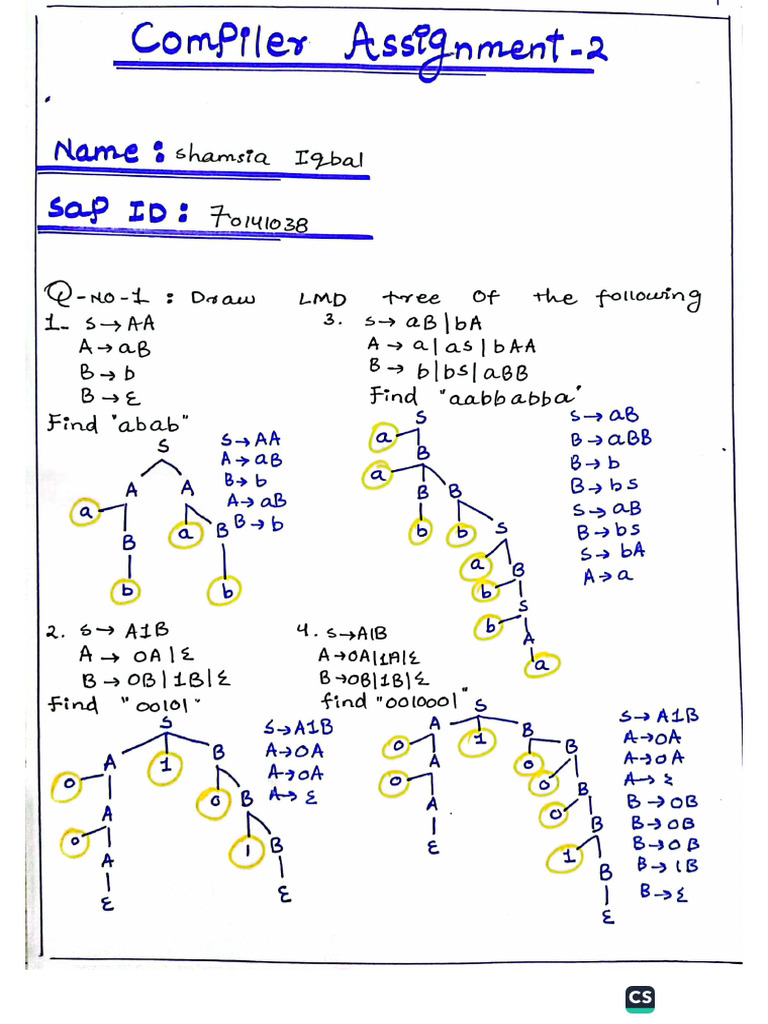 Compiler Assignment-2
Name: Shamsia Iqbal
Sap ID: 70141038
Q-NO-1: Draw LMD tree of the following
1- S→AA
A→aB
B→b
B→ε
Find "abab"
S
A A
a
B a B
b b
S→AA
A→aB
B→b
A→aB
B→b
3. S→aB|bA
A→a|as|bAA
B→b|bs|aBB
Find "aabbabba"
S
a
B
a
B B
b b S
a B
b S
b A
a
S→aB
B→aBB
B→b
B→bs
S→aB
B→bs
S→bA
A→a
2. S→A1B
A→0A|ε
B→0B|1B|ε
Find "00101"
S
A 1 B
0
A 0 B
0
A 1 B
ε ε
S→A1B
A→0A
A→0A
A→ε
4. S→A1B
A→0A|1A|ε
B→0B|1B|ε
find "0010001"
S
A 1 B
0
A 0 B
0
A 0 B
ε 0 B
1 B
ε
S→A1B
A→0A
A→0A
A→ε
B→0B
B→0B
B→0B
B→1B
B→ε
CS